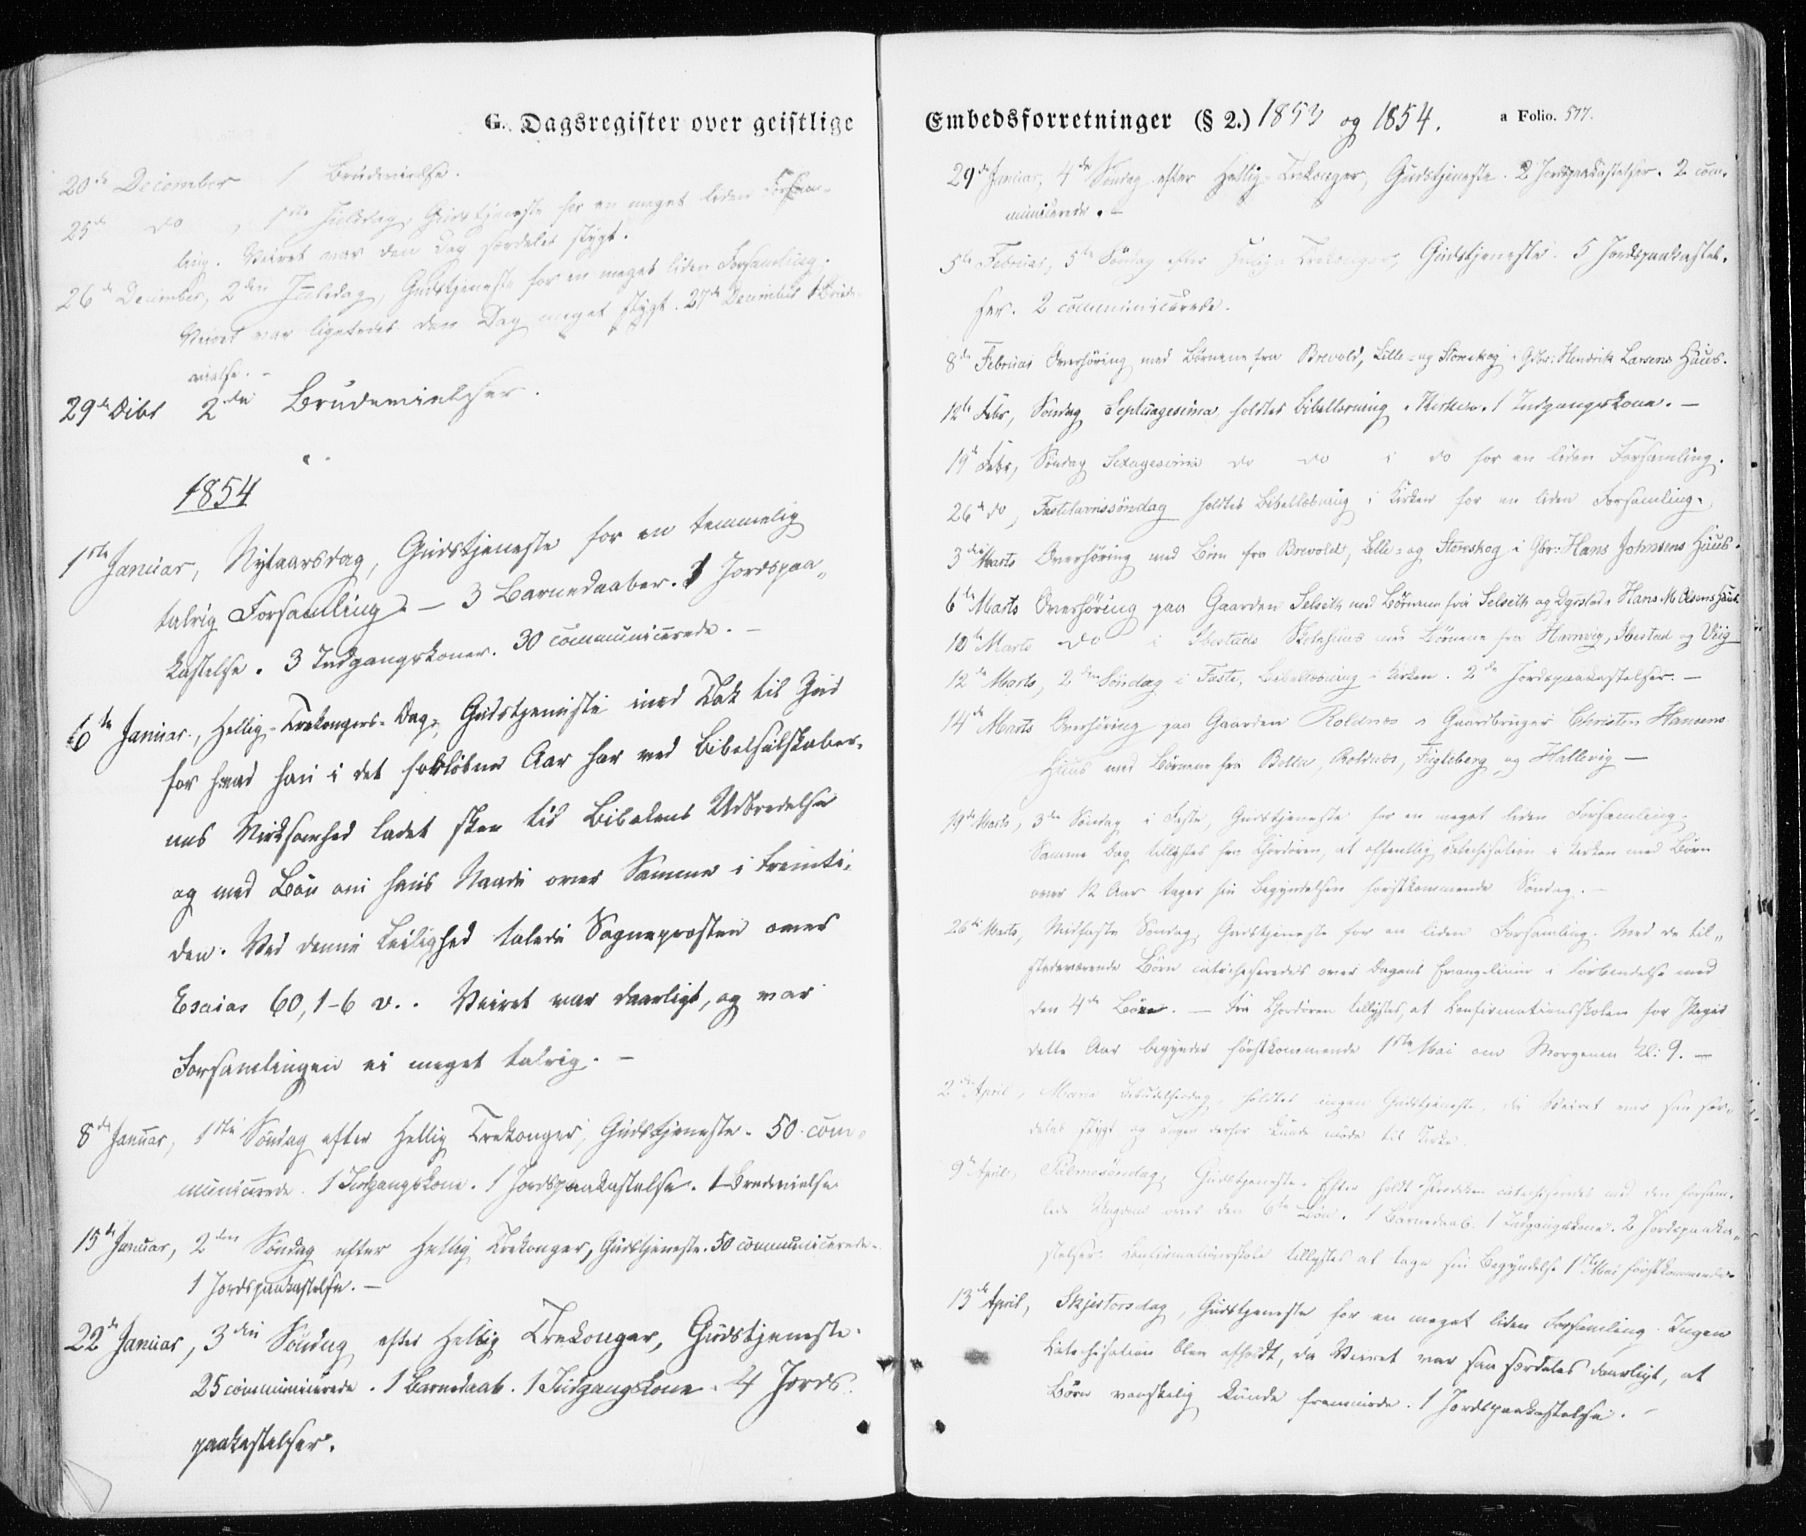 G. Dagsregister over geistlige
20de December 1 Brudevielse.
25de do, 1ste Juledag, Gudstjeneste for en meget liden Forsam-
ling. Veiret var den Dag særdeles stygt.
26de December, 2den Juledag, Gudstjeneste for en meget liden Forsamling.
Veiret var ligeledes den Dag meget stygt. 27de December 1 Brude-
vielse. -
29de Dcbr 2de Brudevielser.
1854
1ste Januar, Nytaarsdag, Gudstjeneste for en temmelig
talrig Forsamling. - 3 Barnedaaber. 1 Jordspaa-
kastelse. 3 Indgangskoner. 30 communicerede. -
6te Januar, Hellig-Trekongers-Dag, Gudstjeneste med Tak til Gud
for hvad han i det forløbne Aar har ved Bibelselskaber-
nes Virksomhed ladet skee til Bibelens Udbredelse
og med Bøn om hans Naade over Samme i Fremti-
den. Ved denne Leilighed talede Sognepresten over
Esaias 60, 1-6 v. . Veiret var daarligt, og var
Forsamlingen ei meget talrig. -
8de Januar, 1ste Søndag efter Hellig Trekonger, Gudstjeneste. 50 com-
municerede. 1 Indgangskone. 1 Jordspaakastelse. 1 Brudevielse
15de Januar, 2den Søndag efter Hellig Trekonger, Gudstjeneste. 50 communicerede.
1 Jordspaakastelse. -
22de Januar, 3die Søndag efter Hellig Trekonger, Gudstjeneste.
25 communicerede. 1 Barnedaab. 1 Indgangskone. 4 Jords-
paakastelser.
Embedsforretninger (§ 2.) 1853 og 1854. a Folio. 577.
29de Januar, 4de Søndag efter Hellig-Trekonger, Gudstjeneste. 2 Jordspaakastelser. 2 com-
municerede. -
5te Februar, 5te Søndag efter Hellig-Trekonger, Gudstjeneste. 5 Jordspaakastel-
ser. 2 communicerede.
8de Februar Overhøring med Børnene fra Brevold, Lille- og Storeskog i Gbr: Hendrik Larsens Huus.
12te Febr, Søndag Septuagesima holdtes Bibellæsning i Kirken. 1 Indgangskone. -
19de Febr, Søndag Sexagesima do do i do for en liden Forsamling.
26de do, Fastelavnssøndag holdtes Bibellæsning i Kirken for en liden Forsamling.
3die Marts Overhøring med Børn fra Brevold, Lille- og Storeskog i Gbr: Hans Johnsens Huus.
6te Marts Overhøring paa Gaarden Selseth med Børnene fra Selseth og i Hans M Olsens Huus
10de Marts do i Ibestads Skolehuus med Børnene fra Hamvig, Ibestad og Viig
12te Marts, 2den Søndag i Faste, Bibellæsning i Kirken. 2de Jordspaakastelser. -
14de Marts Overhøring paa Gaarden Roldnæs i Gaardbruger Christen Hansens
Huus med Børnene fra Bolla, Roldnæs, Fugleberg og Hallevig -
19de Marts, 3die Søndag i Faste, Gudstjeneste for en meget liden Forsamling.
Samme Dag tillystes fra Chordøren, at offentlig Catechisation i Kirken med Børn
over 12 Aar tager sin Begyndelse førstkommende Søndag. -
26de Marts, Midfaste Søndag, Gudstjeneste for en liden Forsamling. Med de til-
stedeværende Børn catechiseredes over Dagens Evangelium i Forbindelse med
den 4de Bøn. - Fra Chordøren tillystes, at Confirmationsskolen for Piger
dette Aar begynder førstkommende 1ste Mai om Morgenen Kl: 9. -
2den April, Mariæ Bebudelsesdag, holdtes ingen Gudstjeneste, da Veiret var saa sær-
deles stygt og ingen derfor kunde møde til Kirke.
9de April, Palmesøndag, Gudstjeneste. Efter holdt Prædiken catechiseredes med den forsam-
lede Ungdom over den 6te Bøn. 1 Barnedaab. 1 Indgangskone. 2 Jordspaaka-
stelser. Confirmationsskole tillystes at tage sin Begyndelse 1ste Mai førstkommende.
13de April, Skjertorsdag, Gudstjeneste for en meget liden Forsamling. Ingen
Catechisation blev afholdt, da Veiret var saa særdeles daarligt, at
Børn vanskelig kunde fremmøde. 1 Jordspaakastelse. -